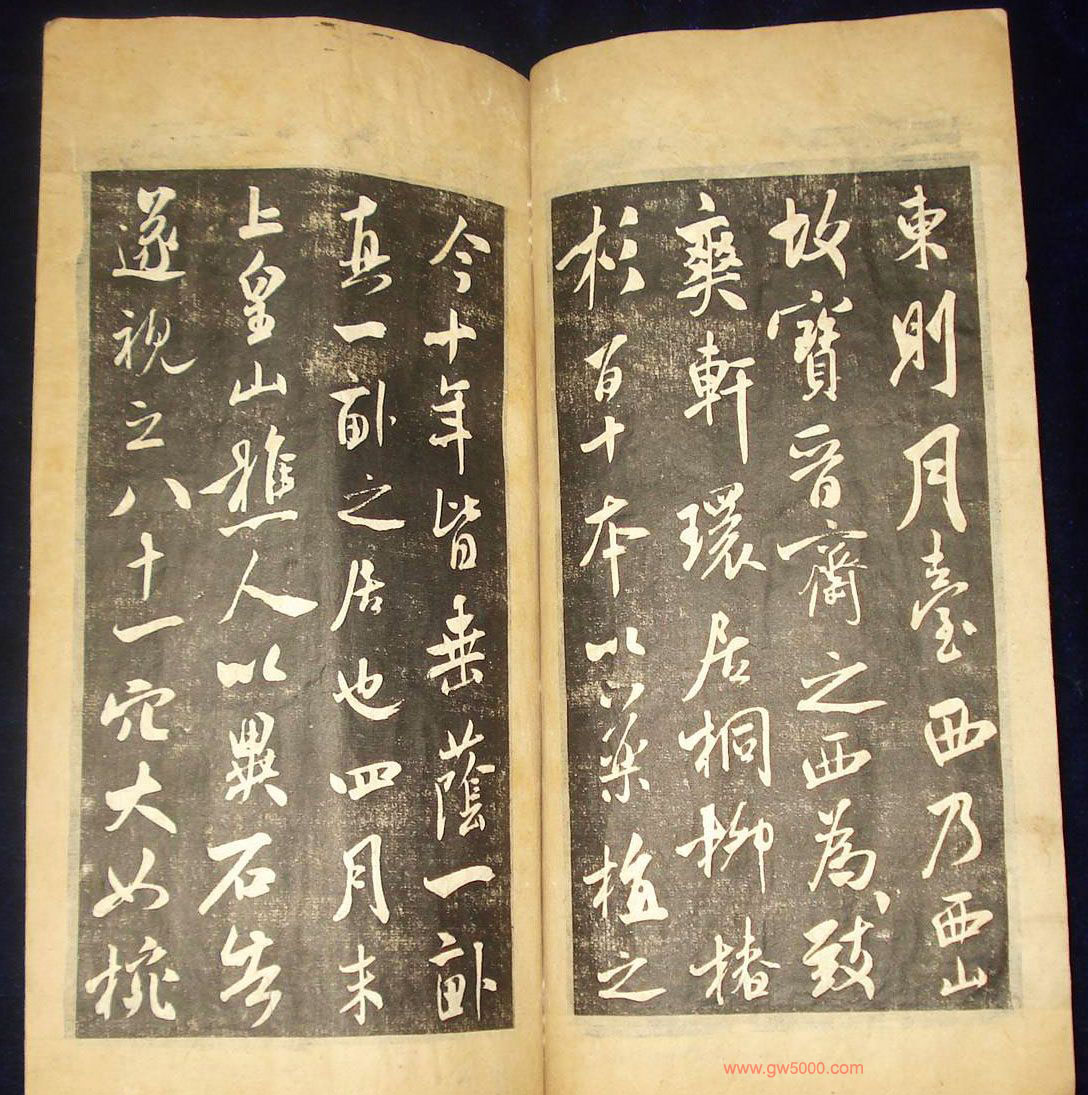 東則月臺西乃西山
故寶晉齋之西為致
爽軒環居桐柳椿
杉百十本以藥植之
今十年皆垂蔭一畝
真一畝之居也四月末
上皇山樵人以異石告
遂視之八十一穴大如椀
www.gw5000.com